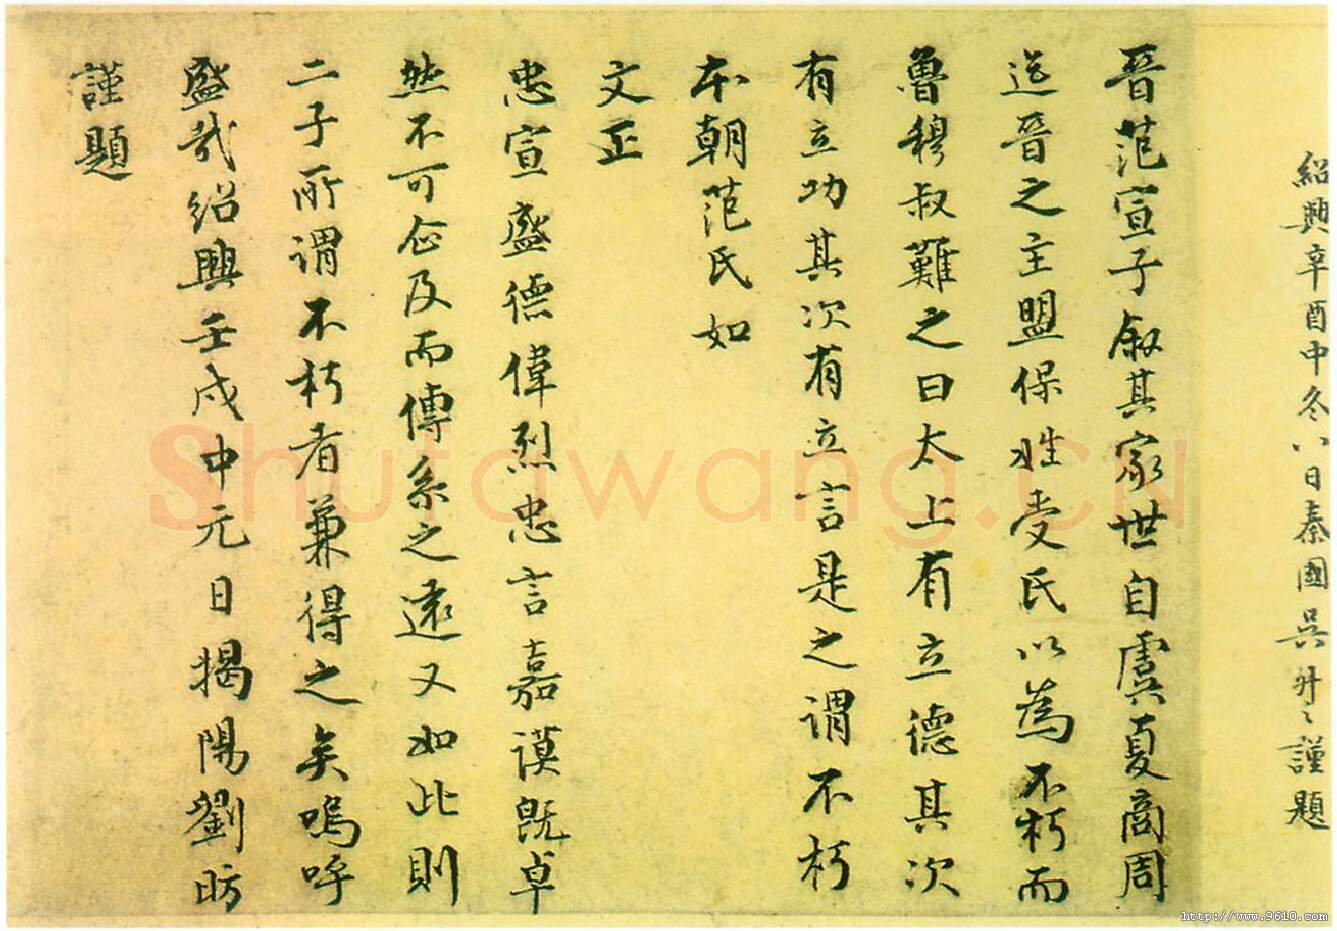 紹興辛酉中冬八日秦國吳升〻謹題
晉范宣子叙其家世自虞夏商周
迄晉之主盟保姓受氏以為不朽而
魯穆叔難之曰太上有立德其次
有立功其次有立言是之謂不朽
本朝范氏如
文正
忠宣盛德偉烈忠言嘉謨既卓
然不可企及而傳系之遠又如此則
二子所謂不朽者兼得之矣嗚呼
盛哉紹興壬戌中元日揭陽劉昉
謹題
Shufawang.CN
http://www.9610.com